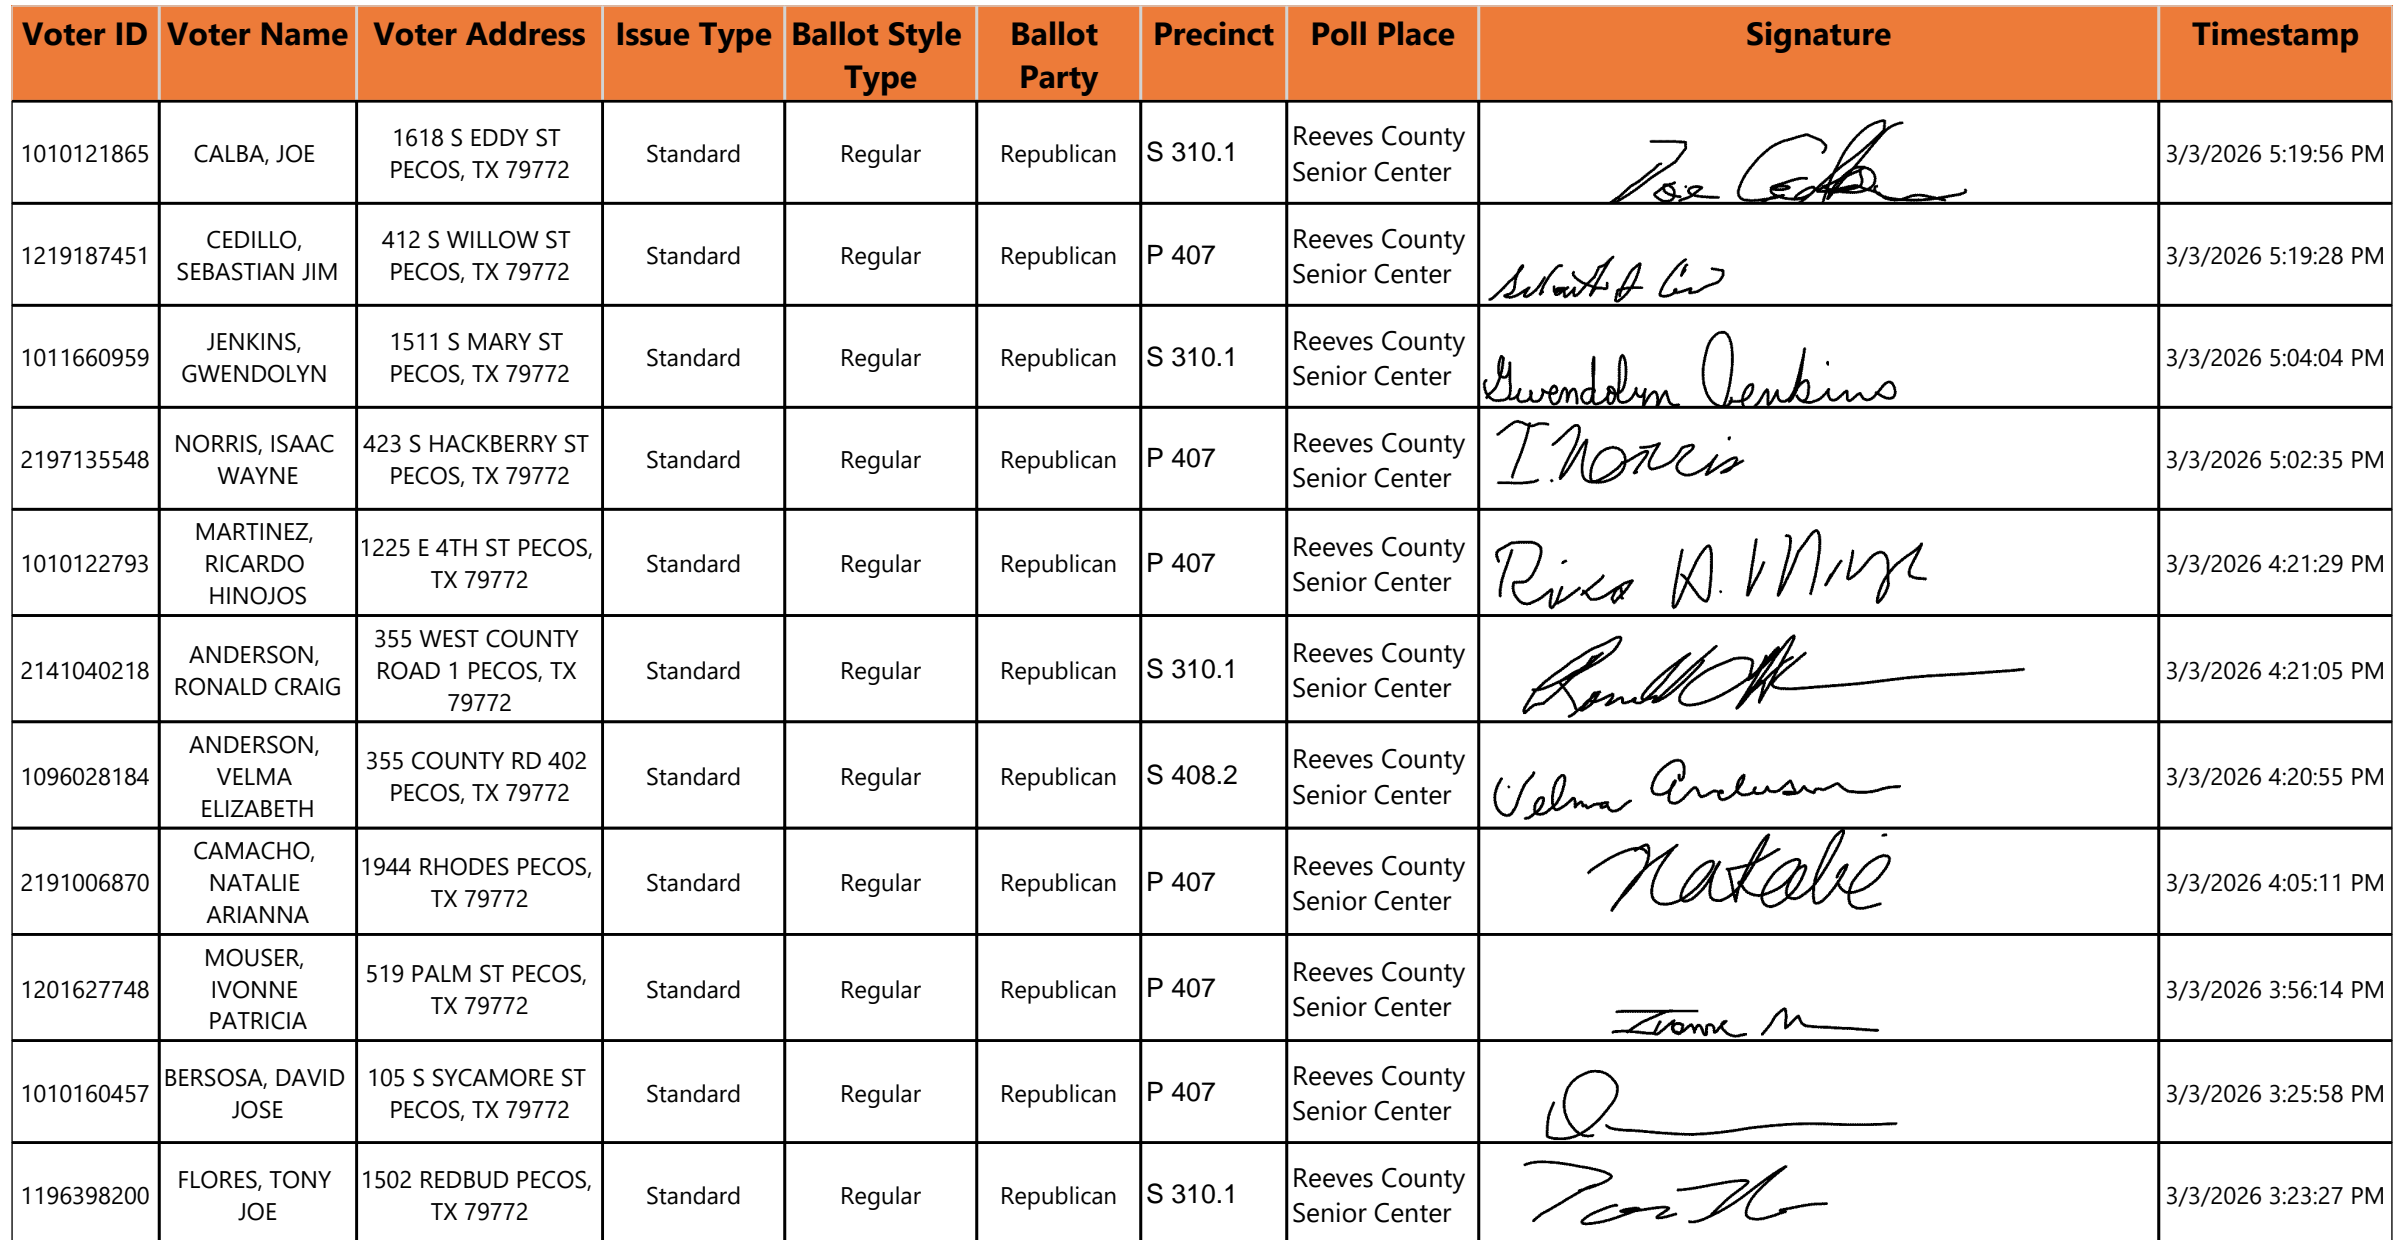 Voter ID Voter Name Voter Address Issue Type Ballot Style Type Ballot Party Precinct Poll Place Signature Timestamp
1010121865 CALBA, JOE 1618 S EDDY ST PECOS, TX 79772 Standard Regular Republican S 310.1 Reeves County Senior Center Joe 3/3/2026 5:19:56 PM
1219187451 CEDILLO, SEBASTIAN JIM 412 S WILLOW ST PECOS, TX 79772 Standard Regular Republican P 407 Reeves County Senior Center 3/3/2026 5:19:28 PM
1011660959 JENKINS, GWENDOLYN 1511 S MARY ST PECOS, TX 79772 Standard Regular Republican S 310.1 Reeves County Senior Center Gwendolyn Jenkins 3/3/2026 5:04:04 PM
2197135548 NORRIS, ISAAC WAYNE 423 S HACKBERRY ST PECOS, TX 79772 Standard Regular Republican P 407 Reeves County Senior Center I. Norris 3/3/2026 5:02:35 PM
1010122793 MARTINEZ, RICARDO HINOJOS 1225 E 4TH ST PECOS, TX 79772 Standard Regular Republican P 407 Reeves County Senior Center 3/3/2026 4:21:29 PM
2141040218 ANDERSON, RONALD CRAIG 355 WEST COUNTY ROAD 1 PECOS, TX 79772 Standard Regular Republican S 310.1 Reeves County Senior Center 3/3/2026 4:21:05 PM
1096028184 ANDERSON, VELMA ELIZABETH 355 COUNTY RD 402 PECOS, TX 79772 Standard Regular Republican S 408.2 Reeves County Senior Center Velma Anderson 3/3/2026 4:20:55 PM
2191006870 CAMACHO, NATALIE ARIANNA 1944 RHODES PECOS, TX 79772 Standard Regular Republican P 407 Reeves County Senior Center Natalie 3/3/2026 4:05:11 PM
1201627748 MOUSER, IVONNE PATRICIA 519 PALM ST PECOS, TX 79772 Standard Regular Republican P 407 Reeves County Senior Center Ivonne M 3/3/2026 3:56:14 PM
1010160457 BERSOSA, DAVID JOSE 105 S SYCAMORE ST PECOS, TX 79772 Standard Regular Republican P 407 Reeves County Senior Center 3/3/2026 3:25:58 PM
1196398200 FLORES, TONY JOE 1502 REDBUD PECOS, TX 79772 Standard Regular Republican S 310.1 Reeves County Senior Center 3/3/2026 3:23:27 PM